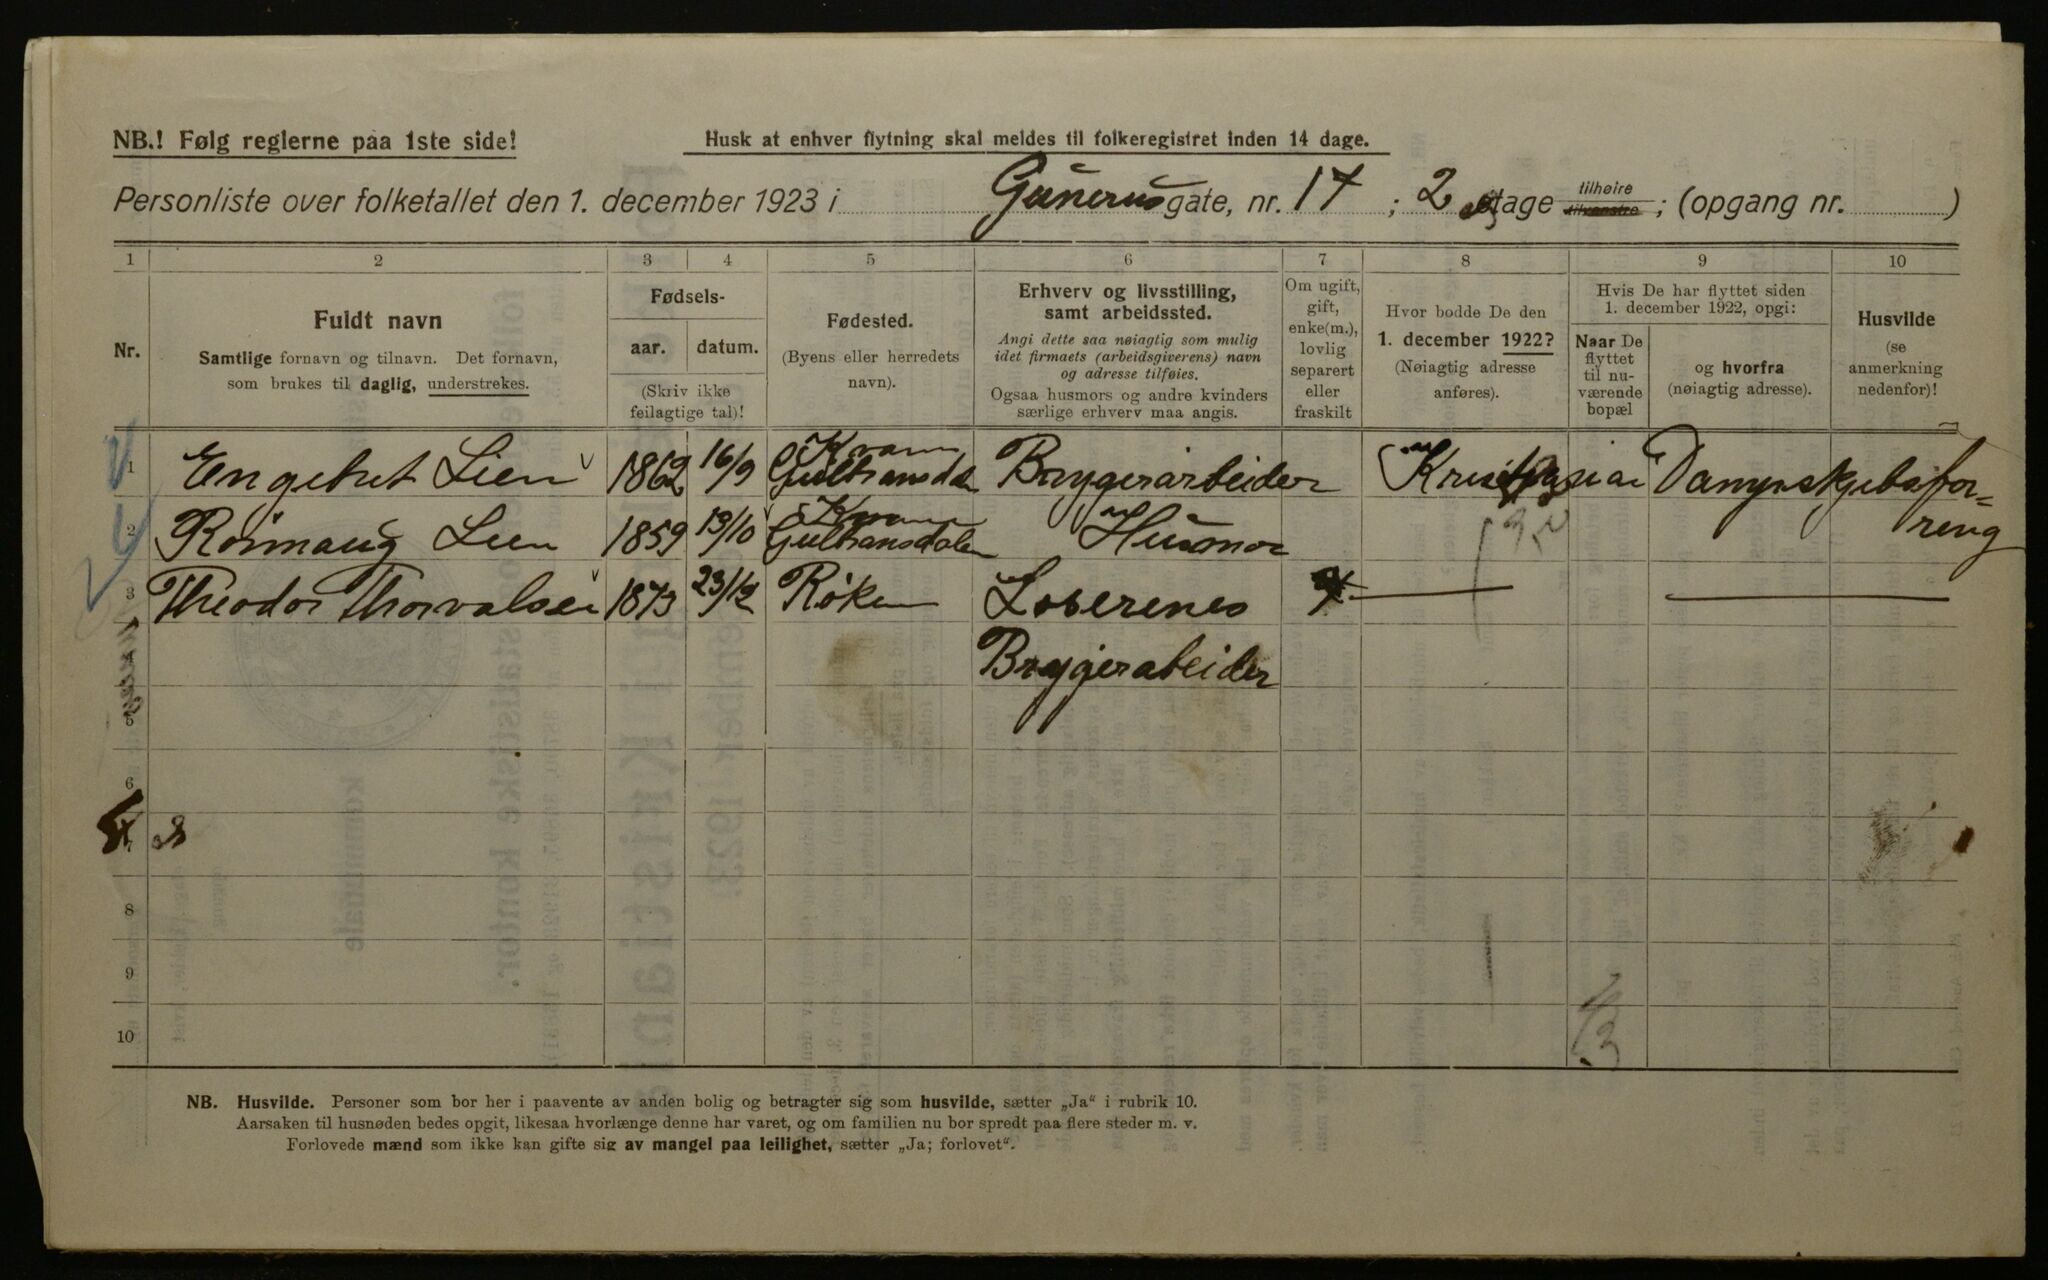 NB.! Følg reglerne paa 1ste side!
Husk at enhver flytning skal meldes til folkeregistret inden 14 dage.
Personliste over folketallet den 1. december 1923 i Gunerus gate, nr. 17 ; 2 etage tilhøire tilvenstre ; (opgang nr. )
1 2 3 4 5 6 7 8 9 10
Nr.
Fuldt navn
Samtlige fornavn og tilnavn. Det fornavn,
som brukes til daglig, understrekes.
Fødsels-
aar. datum.
(Skriv ikke
feilagtige tal)!
Fødested.
(Byens eller herredets
navn).
Erhverv og livsstilling,
samt arbeidssted.
Angi dette saa nøiagtig som mulig
idet firmaets (arbeidsgiverens) navn
og adresse tilføies.
Ogsaa husmors og andre kvinders
særlige erhverv maa angis.
Om ugift,
gift,
enke(m.),
lovlig
separert
eller
fraskilt
Hvor bodde De den
1. december 1922?
(Nøiagtig adresse
anføres).
Hvis De har flyttet siden
1. december 1922, opgi:
Naar De
flyttet
til nu-
værende
bopæl
og hvorfra
(nøiagtig adresse).
Husvilde
(se
anmerkning
nedenfor)!
Kvam
1 Engebret Lien 1862 16/9 Gulbransdalen Bryggerarbeider
Kvam
2 Lien 1859 13/10 Gulbransdalen Husmor
3 Theodor Thorvalsen 1873 23/12 Røken Loserenes
4 Bryggerabeider
5
6
8
9
10
NB. Husvilde. Personer som bor her i paavente av anden bolig og betragter sig som husvilde, sætter „Ja“ i rubrik 10.
Aarsaken til husnøden bedes opgit, likesaa hvorlænge denne har varet, og om familien nu bor spredt paa flere steder m. v.
Forlovede mænd som ikke kan gifte sig av mangel paa leilighet, sætter „Ja; forlovet“.